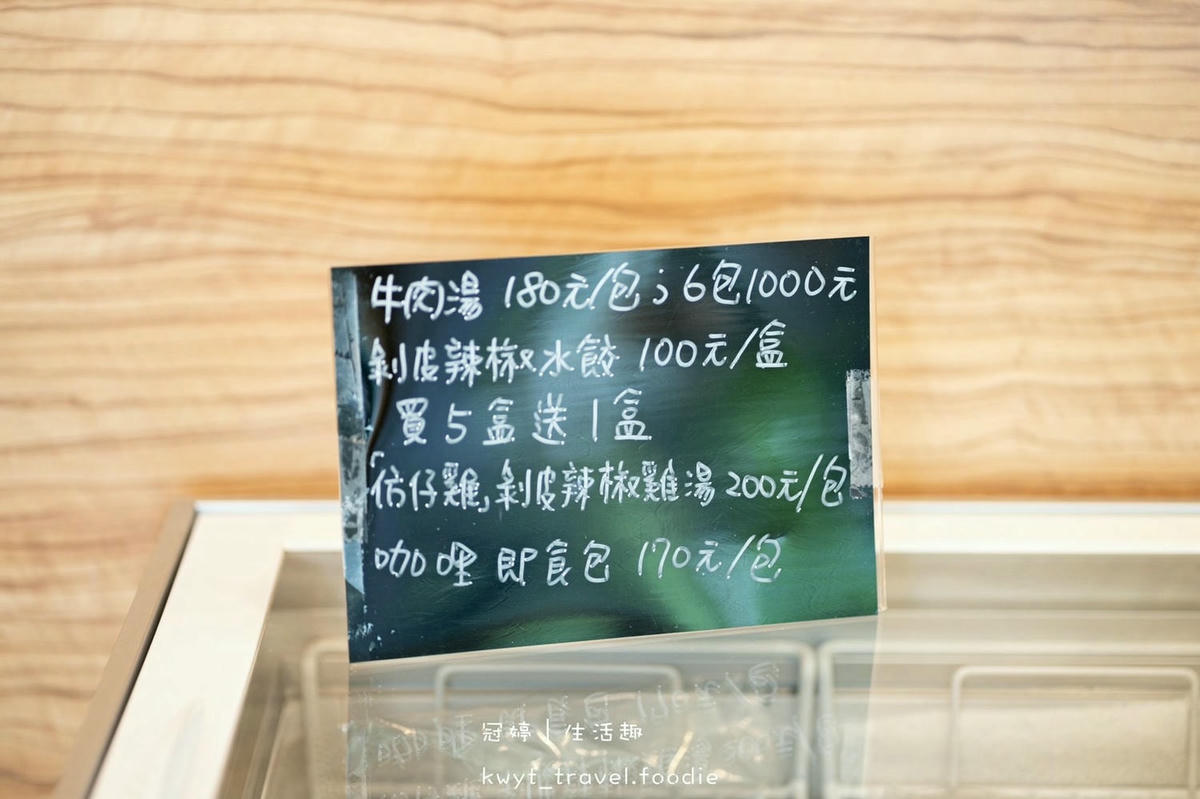 牛肉湯 180元/包；6包1000元
剝皮辣椒水餃 100元/盒
買5盒送1盒
仿仔雞,剝皮辣椒雞湯 200元/包
咖哩 即食包 170元/包
冠婷|生活趣
kwyt_travel.foodie